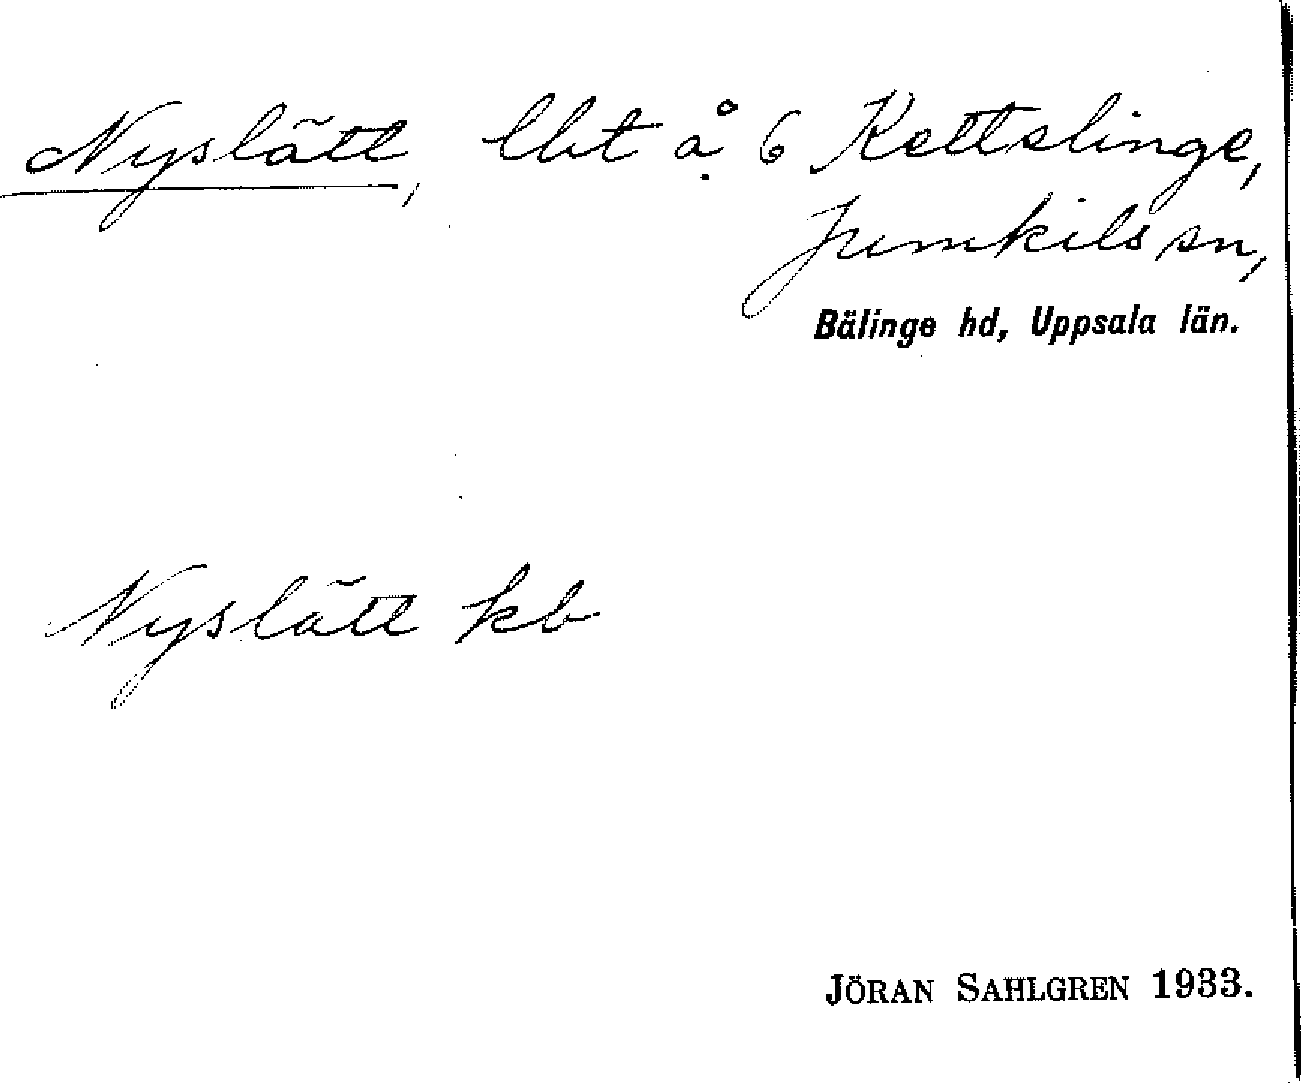 Nyslätt, lbt å 6 Kettslinge,
Jumkils sn,
Bälinge hd, Uppsala län.
Nyslätt kb
JÖRAN SAHLGREN 1933.